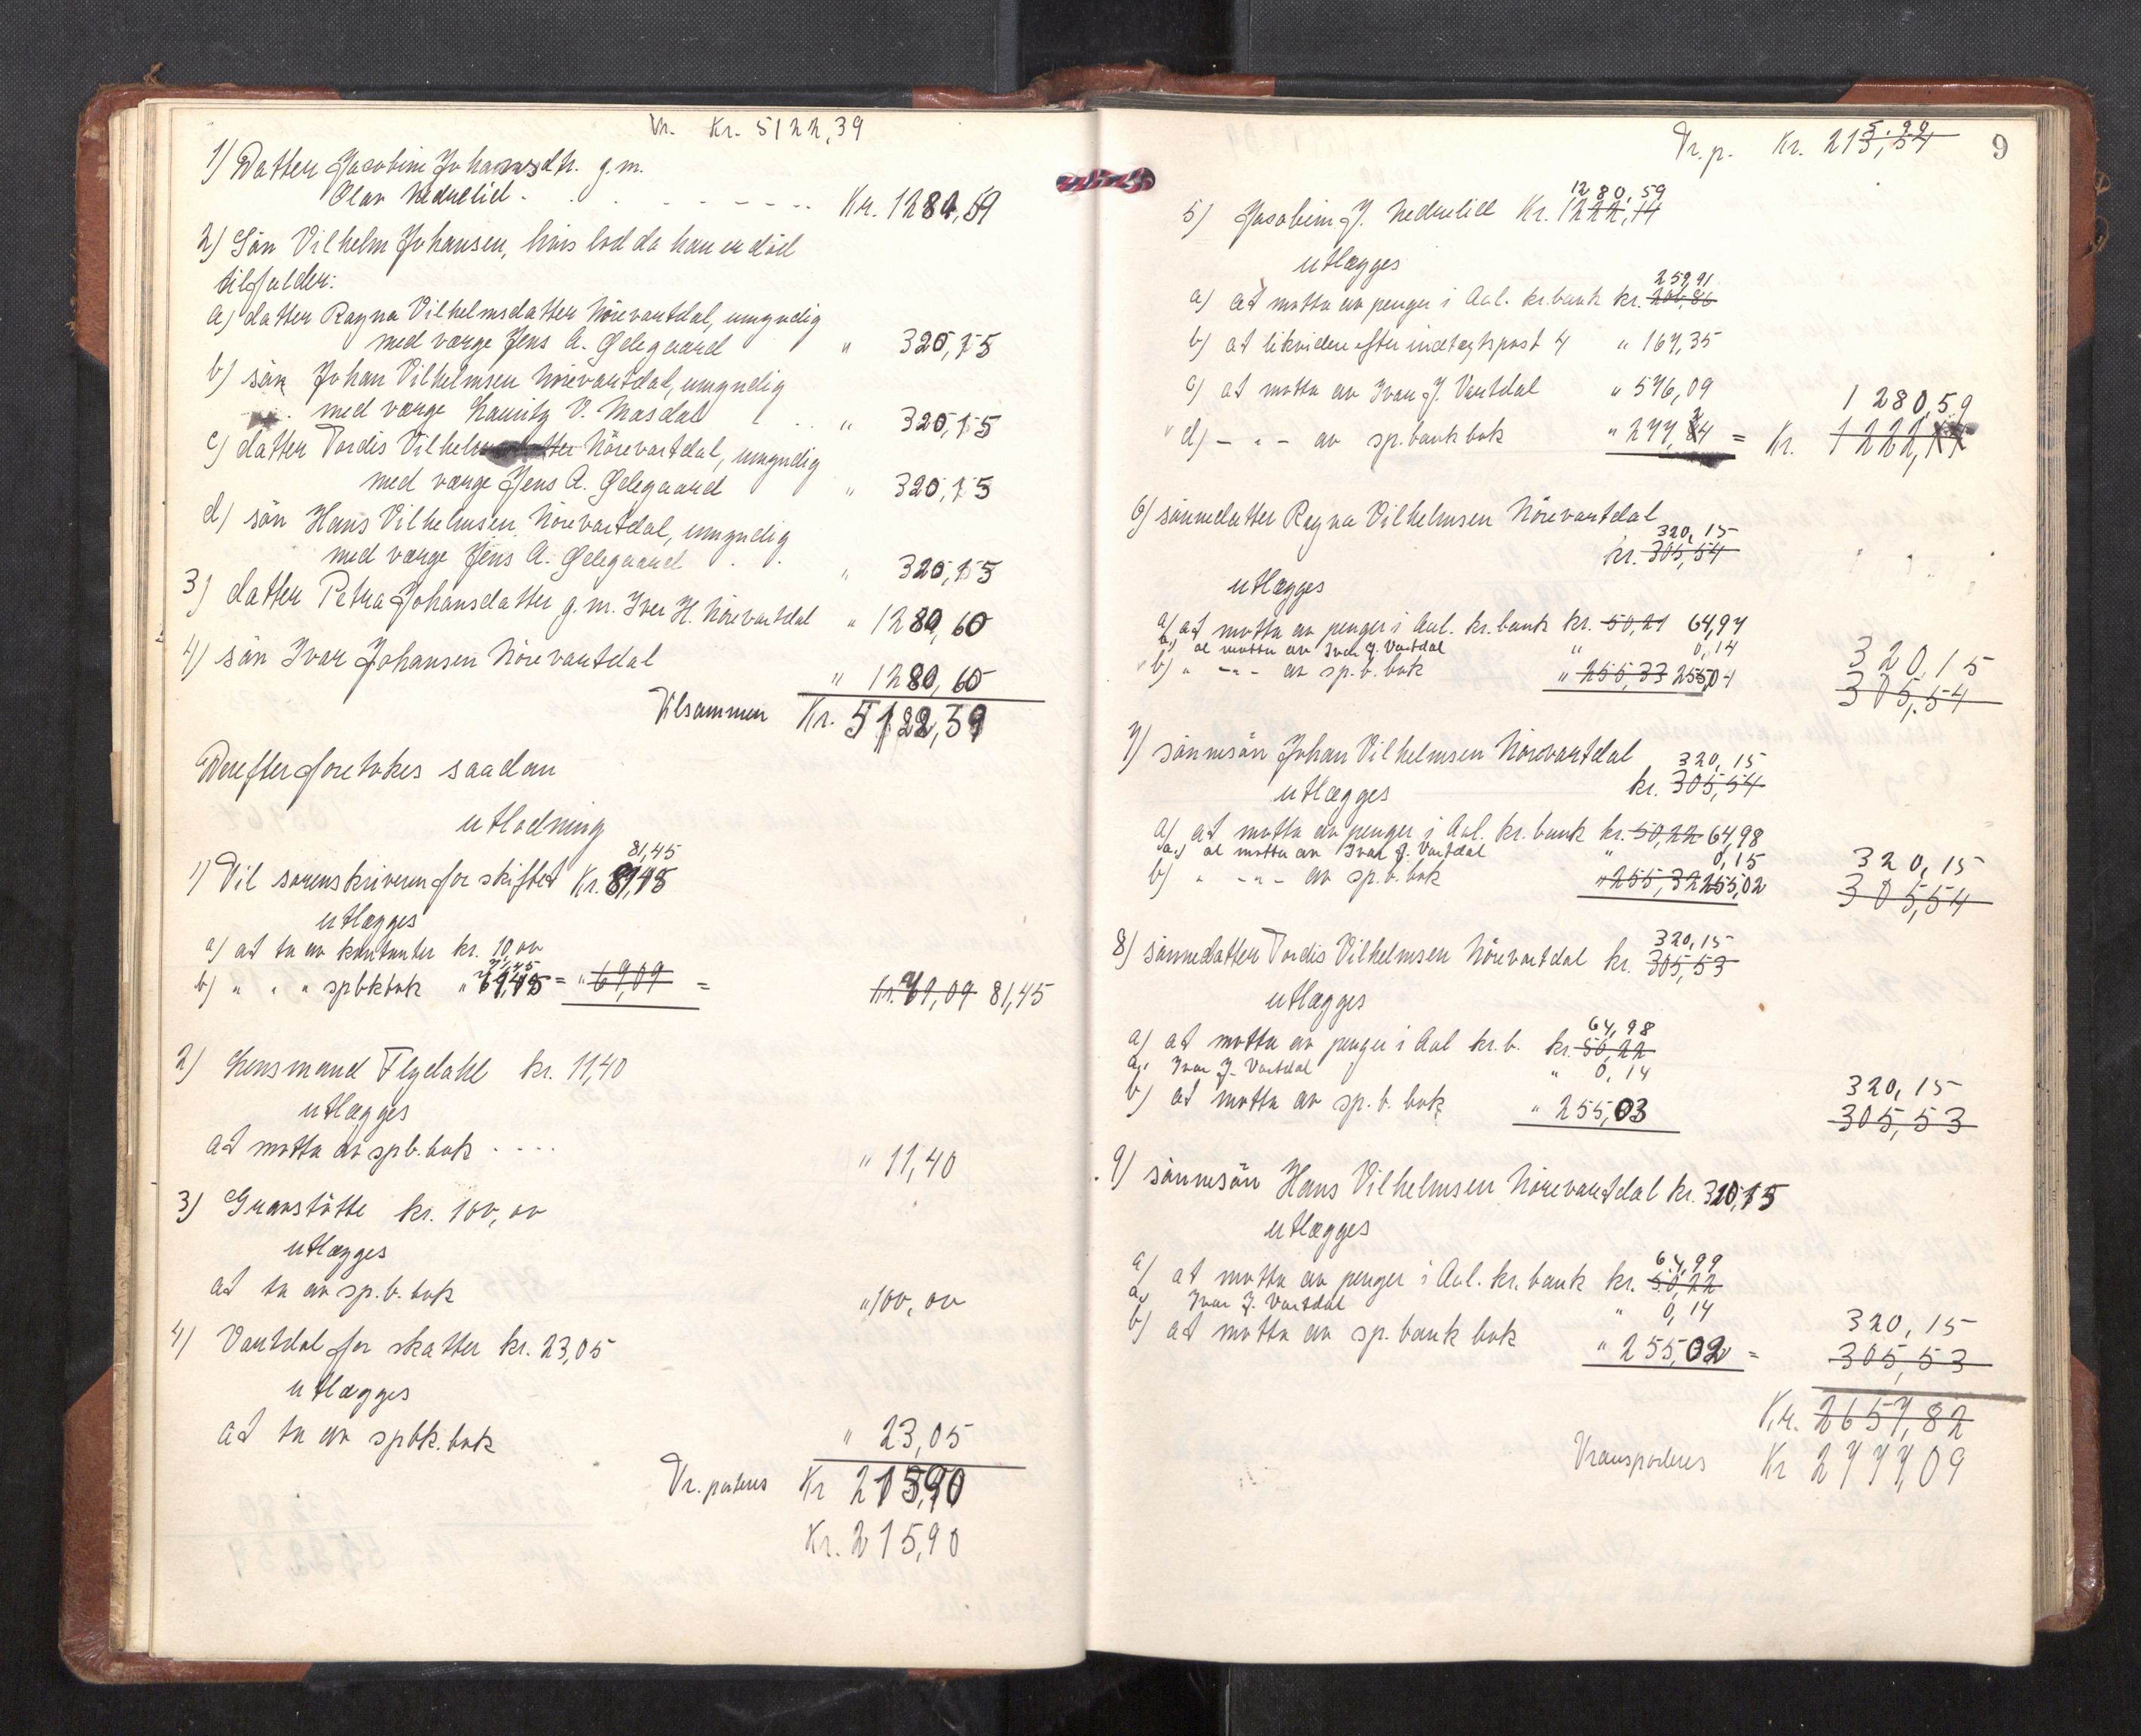 Tr. Kr. 5122,39
1) Datter Jacobine Johansdtr. g.m.
Olav Nedrelid - - - - - Kr. 1280,59
2) Sön Vilhelm Johansen, hvis lod da han er död
tilfalder:
a) datter Ragna Vilhelmsdatter Nörevartdal, umyndig
med værge Jens A. Ødegaard " 320,15
b) sön Johan Vilhelmsen Nörevartdal, umyndig
med værge Lauritz V. Masdal " 320,15
c) datter Tordis Vilhelmsdatter Nörevartdal, umyndig
med værge Jens A. Ødegaard " 320,15
d) sön Hans Vilhelmsen Nörevartdal, umyndig
med værge Jens A. Ødegaard " 320,15
3) datter Petra Johansdatter g.m. Iver H. Nörevartdal " 1280,60
4) sön Ivar Johansen Nörevartdal
" 1280,60
Tilsammen Kr. 5122,39
Derefter foretokes saadan
utlodning
81,45
1) Til sorenskriveren for skiftet Kr.
utlægges
a) at ta av kontanter kr. 10,00
71,45
b) " " " spbkbok " = " 69,09 =
81,45
2) Lensmand Flydahl kr. 11,40
utlægges
at motta av spb.bok - - - -
" 11,40
3) Gravstötte kr. 100,00
utlægges
at ta av sp.b.bok
" 100,00
4) Vartdal for skatter kr. 23,05
utlægges
at ta av spbk.bok " 23,05
Tr.porteres Kr 215,90
Kr. 215,90
Tr.p. Kr. 9
1280,59
5) Jacobine J. Nedrelid Kr. 1222,14
utlægges
259,91
a) at motta av penger i Aal. kr.bank kr. 201,86
b) at likvidere efter indtægtspost 4 " 167,35
c) at motta av Ivar J. Vartdal " 576,09
1280,59
d) - " - av sp.bankbok " 277,24 = Kr. 1222,14
6) sönnedatter Ragna Vilhelmsen Nörevartdal
320,15
kr. 305,54
utlægges
a) at motta av penger i Aal. kr.bank kr. 50,21 64,97
a) at motta av Ivar J. Vartdal " 0,14
320,15
b) " - " - av sp.b.bok " 255,33 255,04
305,54
7) sönnesön Johan Vilhelmsen Nörevartdal
320,15
utlægges kr. 305,54
a) at motta av penger i Aal. kr.bank kr. 50,22 64,98
a) at motta av Ivar J. Vartdal " 0,15
320,15
b) " - " - av sp.b.bok " 255,32 255,02
305,54
320,15
8) sönnedatter Tordis Vilhelmsen Nörevartdal kr. 305,53
utlægges
64,98
a) at motta av penger i Aal kr.b. kr. 50,22
a) Ivar J. Vartdal " 0,14
320,15
b) at motta av sp.b.bok " 255,03
305,53
9) sönnesön Hans Vilhelmsen Nörevartdal kr. 320,15
utlægges
64,99
a) at motta av penger i Aal. kr.bank kr. 50,22
a) Ivar J. Vartdal " 0,14
320,15
b) at motta av sp.bank bok " 255,02 =
305,53
Kr. 2657,82
Transporteres Kr 2777,09